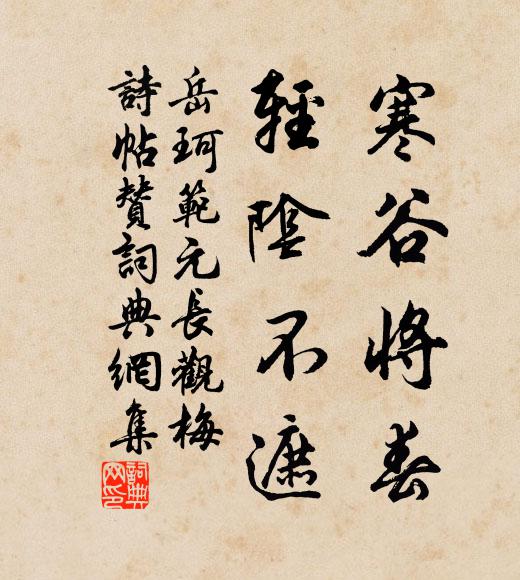 寒谷將春
輕陰不遮
岳珂範元長觀梅
詩帖贊詞典網集
詞典網印